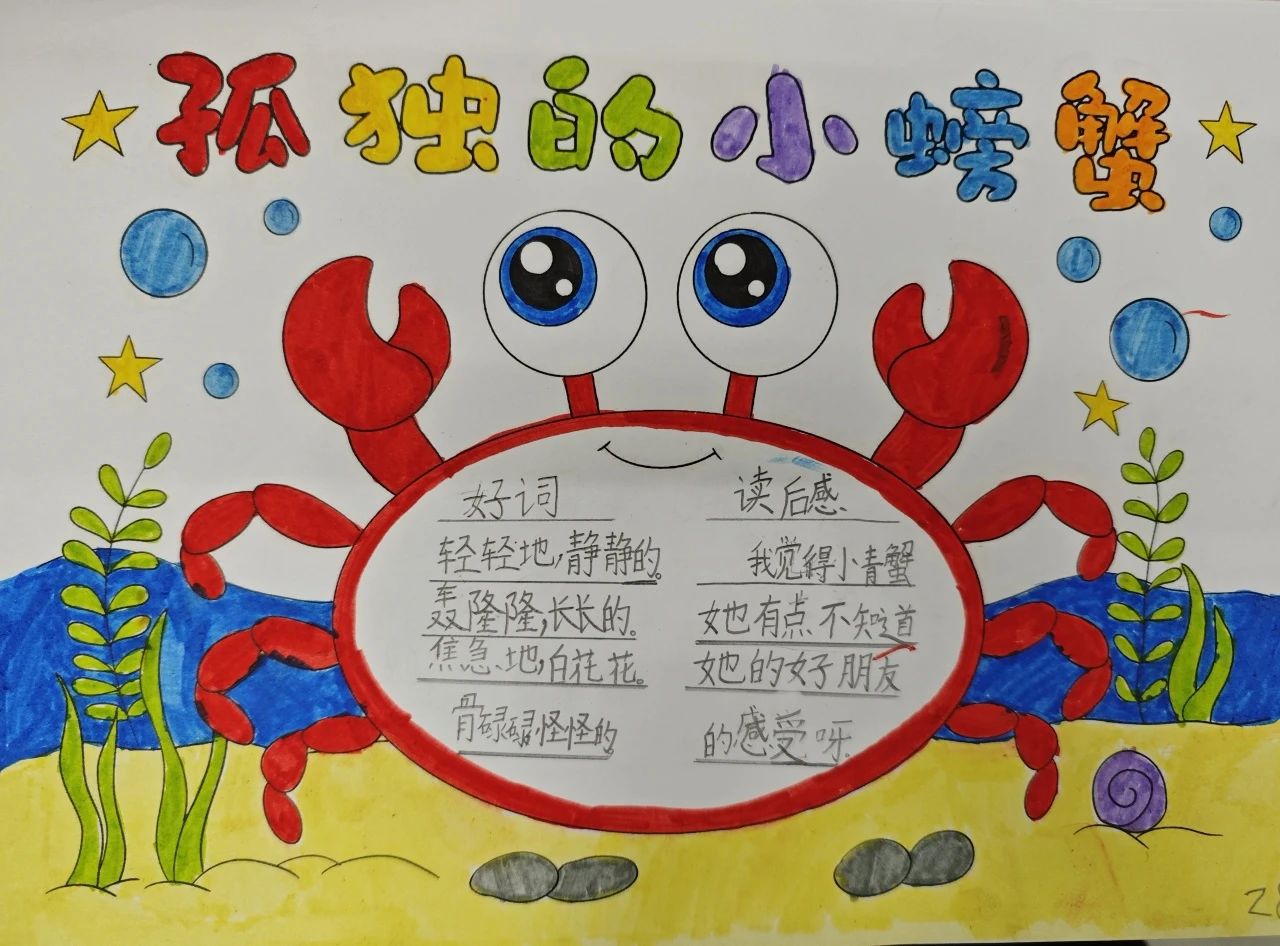 孤独的小螃蟹
好词
轻轻地,静静的。
轰隆隆,长长的。
焦急地,白花花。
骨碌碌,怪怪的
读后感
我觉得小青蟹
她有点不知道
她的好朋友
的感受呀.